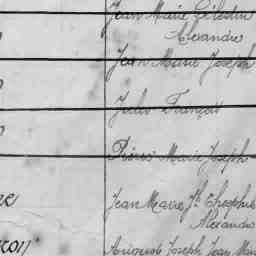 Jean Marie Célestin
Alexandre
Jean Marie Joseph
Jules François
Pierre Marie Joseph
Jean Marie Jh Théophile
Alexandre
Joseph Jean Marie